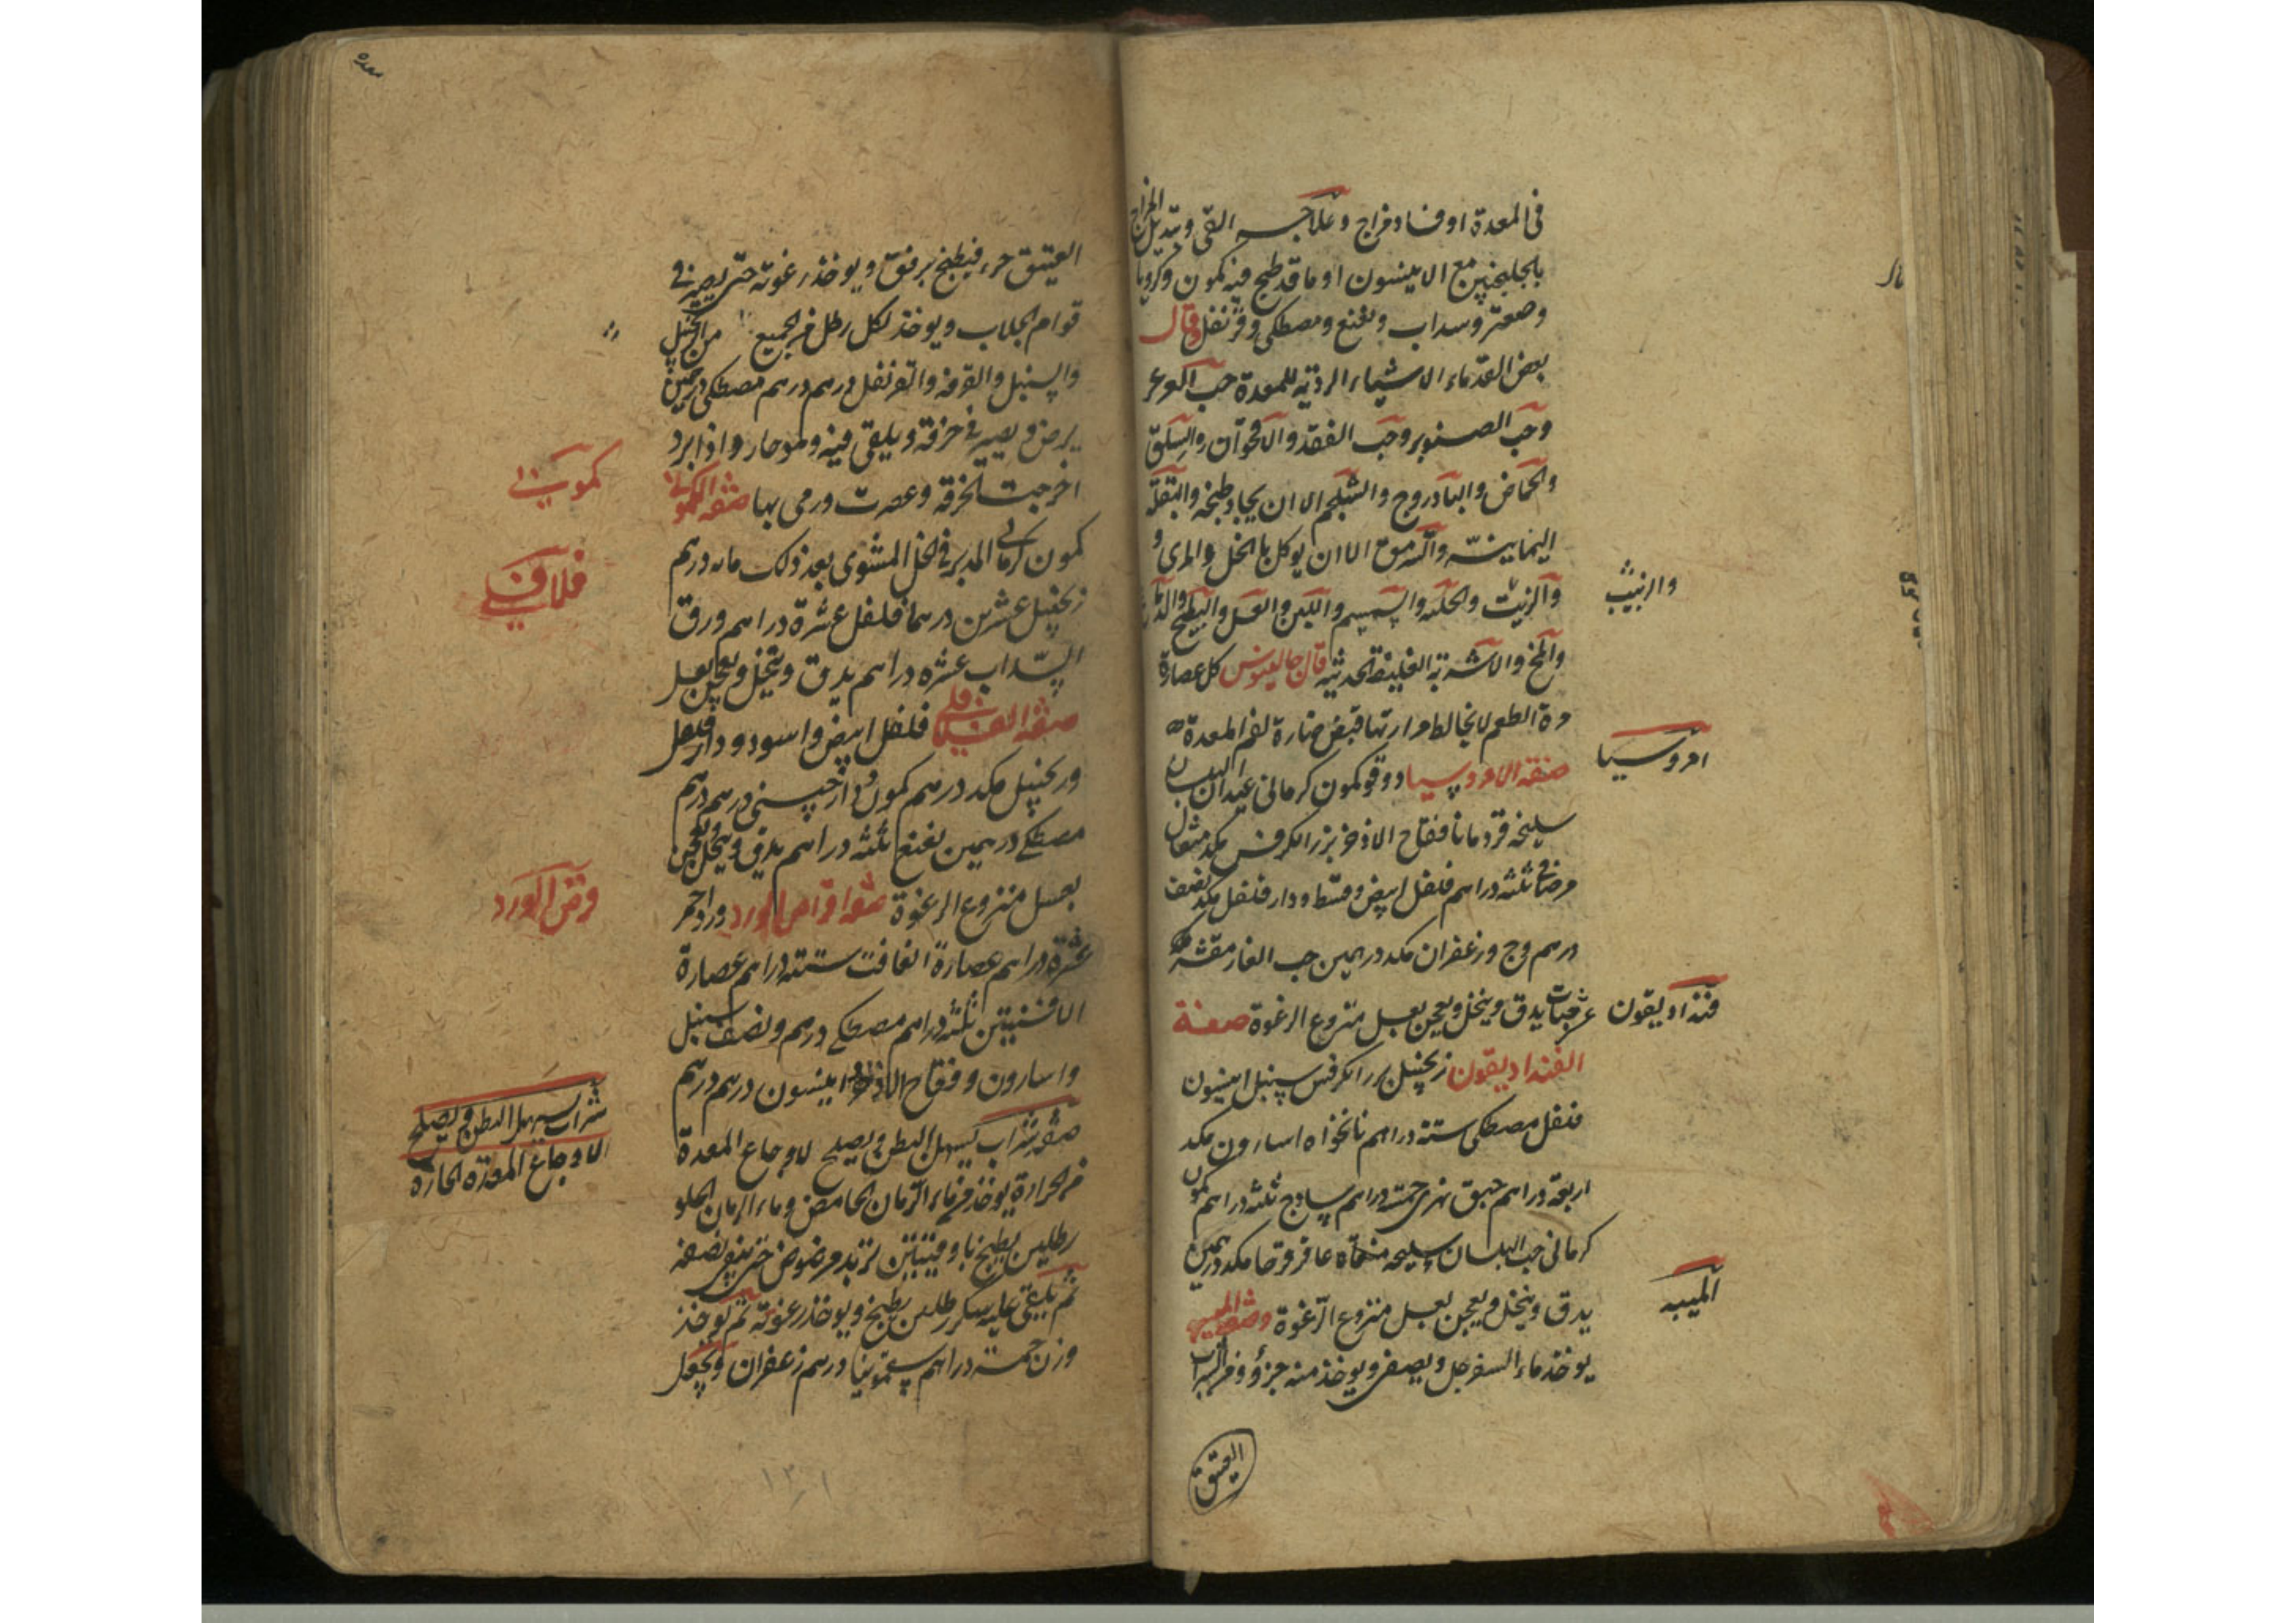 في المعدة او فساد مزاج وعلاجه القي وتبديل المزاج
بالجلنجبين مع الانيسون او ماقد طبخ فيه كمون وكرويا
وصعتر وسداب ونعنع ومصطكى وقرنفل وقال
بعض القدماء الاشياء الردية للمعدة حب العرعر
وحب الصنوبر وحب الفقد والاقحوان والسلق
والحماض والباذروج والشلجم الا ان يجاد طبخه والبقلة
اليمانية والسرمق الا ان يوكل بالخل والمرى و
والزبيب
والزيت والحلبة والسمسم واللبن والعسل والبطيخ
والمخ والاشربة الغليظة الحديثة قال جالينوس كل عصارة
مرة الطعم لا يخالط مرارتها قبض ضارة لفم المعدة
امروسيا
صفة الامروسيا دوقو كمون كرماني عيدان البلسان
سليخه قردمانا فقاح الاذخر بزر الكرفس مكد مثقال
مرصافي ثلثه دراهم فلفل ابيض وقسط ودار فلفل مكد نصف
درهم وج وزعفران مكد درهمين حب الغار مقشر
فنداديقون
عشر حبات يدق وينخل ويعجن بعسل منزوع الرغوة صفة
الفنداديقون زنجبيل بزر الكرفس سنبل انيسون
فلفل مصطكى ستة دراهم نانخواه اسارون مكد
اربعة دراهم حبق نهرى خمسة دراهم ساذج ثلثه دراهم كمون
كرماني حب البلسان سليخه منقاة عاقرقرحا مكد درهمين
الميبه
يدق وينخل ويعجن بعسل منزوع الرغوة وصفة الميبه
يوخذ ماء السفرجل ويصفى ويوخذ منه جزؤ ومن الشراب
العتيق
معده
العتيق جزء فيطبخ برفق ويوخذ رغوته حتى يصير في
قوام الجلاب ويوخذ لكل رطل من الجميع من الزنجبيل
والسنبل والقرفه والقرنفل درهم درهم مصطكى درهمين
يرض ويصير في خرقة ويلقى فيه وهو حار واذا برد
كموني
اخرجت الخرقة وعصرت ورمى بها صفة الكموني
كمون كرماني المدبر في الخل المشوى بعد ذلك مايه درهم
فلافلي
زنجبيل عشرين درهما فلفل عشرة دراهم ورق
السداب عشره دراهم يدق وينخل ويعجن بعسل
صفة الفلافلي فلفل ابيض واسود ودار فلفل
وزنجبيل مكد درهم كمون ودارصيني درهم درهم
مصطكى درهمين نعنع ثلثه دراهم يدق وينخل ويعجن
قرص الورد
بعسل منزوع الرغوة صفة اقراص الورد ورد احمر
عشرة دراهم عصارة الغافت ستة دراهم عصارة
الافسنتين ثلثه دراهم مصطكى درهم ونصف سنبل
واسارون وفقاح الاذخر وانيسون درهم درهم
شراب يسهل البطن ويصلح
لاوجاع المعدة الحاره
صفة شراب يسهل البطن ويصلح لاوجاع المعدة
من الحرارة يوخذ من ماء الرمان الحامض وماء الرمان الحلو
رطلين يطبخ باوقيتين تربد مرضوض حتى يبقى نصفه
ثم يلقى عليه سكر رطلين يطبخ ويوخذ رغوته ثم يوخذ
وزن خمسة دراهم سقمونيا درهم زعفران ويجعل